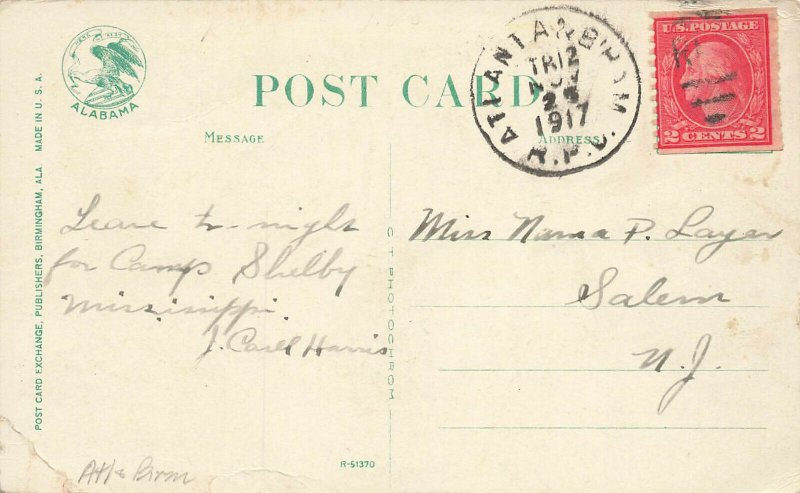 ALABAMA
POST CARD
MESSAGE
ADDRESS
ATLANTA & B'HAM
TR 12
NOV
1917
R.P.O.
U.S. POSTAGE
2 CENTS 2
POST CARD EXCHANGE, PUBLISHERS, BIRMINGHAM, ALA. MADE IN U. S. A.
Leave to-night
for Camp Shelby
Mississippi.
J. Carll Harris
C T PHOTOCHROM
Miss Nama P. Layer
Salem
N.J.
R-51370
Atl & Birm